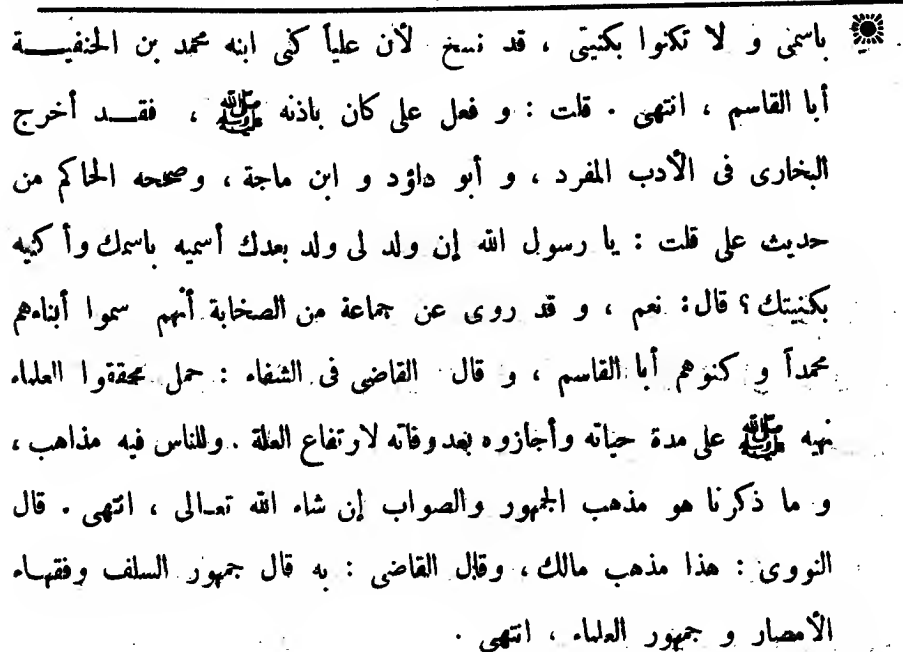 باسمى و لا تكنوا بكنيتى ، قد نسخ لأن علياً كنى ابنه محمد بن الحنفيـــة
أبا القاسم ، انتهى . قلت : و فعل على كان باذنه ﷺ ، فقــد أخرج
البخارى فى الأدب المفرد ، و أبو داؤد و ابن ماجة ، وصححه الحاكم من
حديث على قلت : يا رسول الله إن ولد لى ولد بعدك أسميه باسمك وأ كنيه
بكنيتك ؟ قال : نعم ، و قد روى عن جماعة من الصخابة أنهم سموا أبناءهم
محمداً و كنوهم أبا القاسم ، و قال القاضى فى الشفاء : حمل محققوا العلماء
نهيه ﷺ على مدة حياته وأجازوه بعد وفاته لارتفاع العلة . وللناس فيه مذاهب ،
و ما ذكرنا هو مذهب الجمهور والصواب إن شاء الله تعـالى ، انتهى . قال
النووى : هذا مذهب مالك ، وقال القاضى : به قال جمهور السلف وفقهـاء
الأمصار و جمهور العلماء ، انتهى .